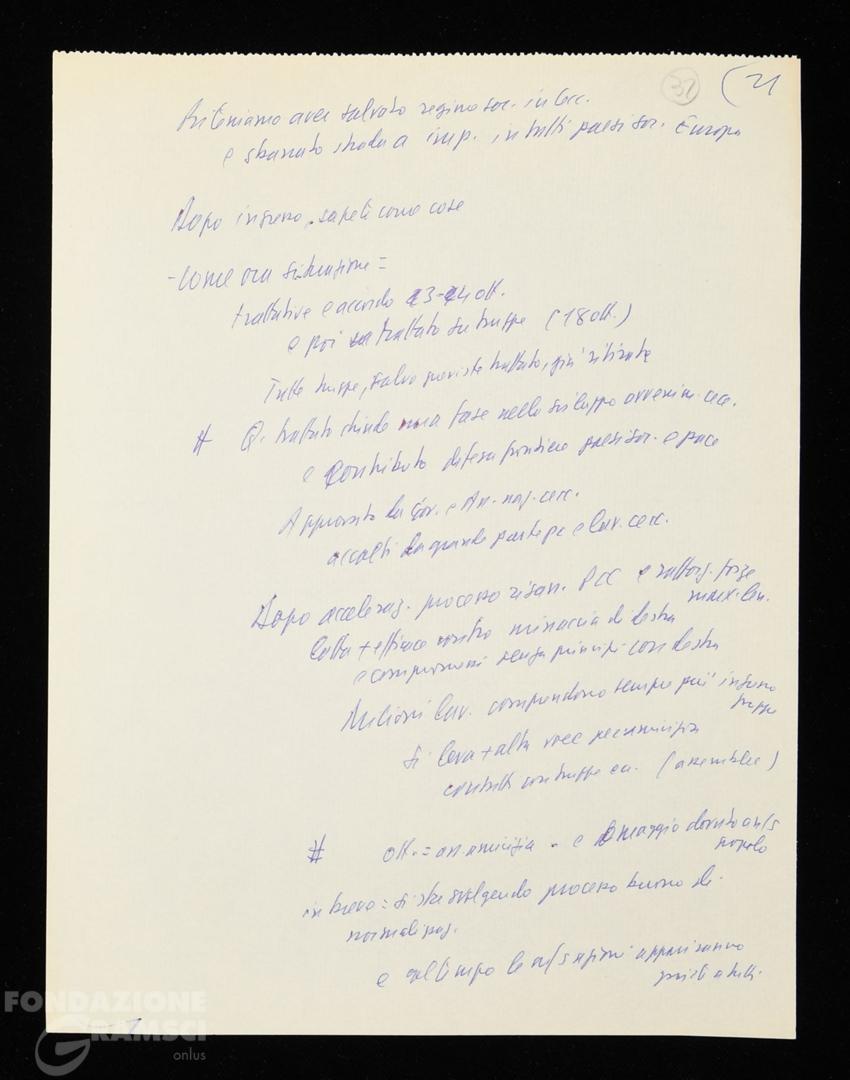 32 (21
Riteniamo aver salvato regime soc. in Cec.
e sbarrato strada a imp. in tutti paesi soc. Europa
Dopo ingresso, sapete come cose
- Come ora situazione =
trattative e accordo 3-4 ott.
e poi trattato su truppe (18 ott.)
Tutte truppe, salvo previste trattato, già ritirate
# Q. trattato chiude una fase nello sviluppo avvenim. cec.
e contributo difesa frontiere paesi soc. e pace
Approvato da Gov. e As. naz. cec.
accolti da grande parte pc e lav. cec.
Dopo acceleraz. processo risan. PCC e rafforz. forze
marx-len.
Lotta + efficace contro minaccia di destra
e compromessi senza principi con destra
Milioni lav. comprendono sempre più ingresso
truppe
Si leva + alta voce per amicizia
contatti con truppe (assemblee)
# ott. = amicizia e omaggio dovuto a u/s
popolo
in breve = si sta svolgendo processo buono di
normalizzaz.
e col tempo le n/s azioni appariranno
giuste a tutti.
FONDAZIONE
GRAMSCI
onlus